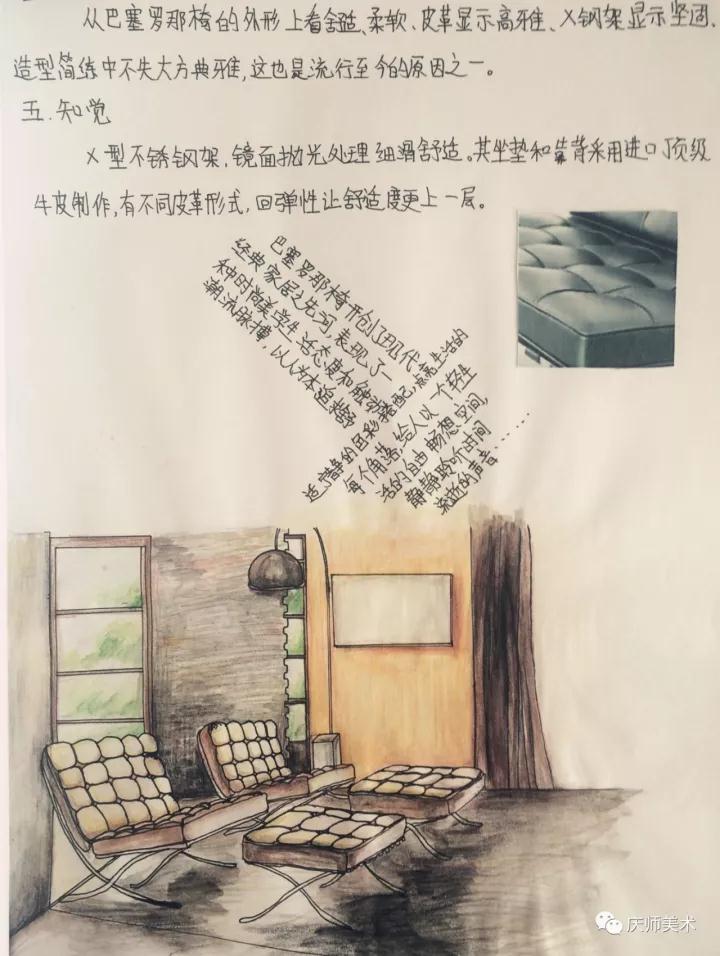 从巴塞罗那椅的外形上看舒适、柔软、皮革显示高雅、X钢架显示坚固、
造型简练中不失大方典雅,这也是流行至今的原因之一。
五.知觉
X型不锈钢架,镜面抛光处理细滑舒适。其坐垫和靠背采用进口顶级
牛皮制作,有不同皮革形式,回弹性让舒适度更上一层。
巴塞罗那椅开创了现代
经典家居之先河,表现了一
种时尚美学生活态度和触动
潮流脉搏,以人为本追求舒
适宁静的色彩搭配,点亮生活的
每个角落,给人以一个轻生
活的自由畅想空间,
静静聆听时间
流逝的声音……
庆师美术